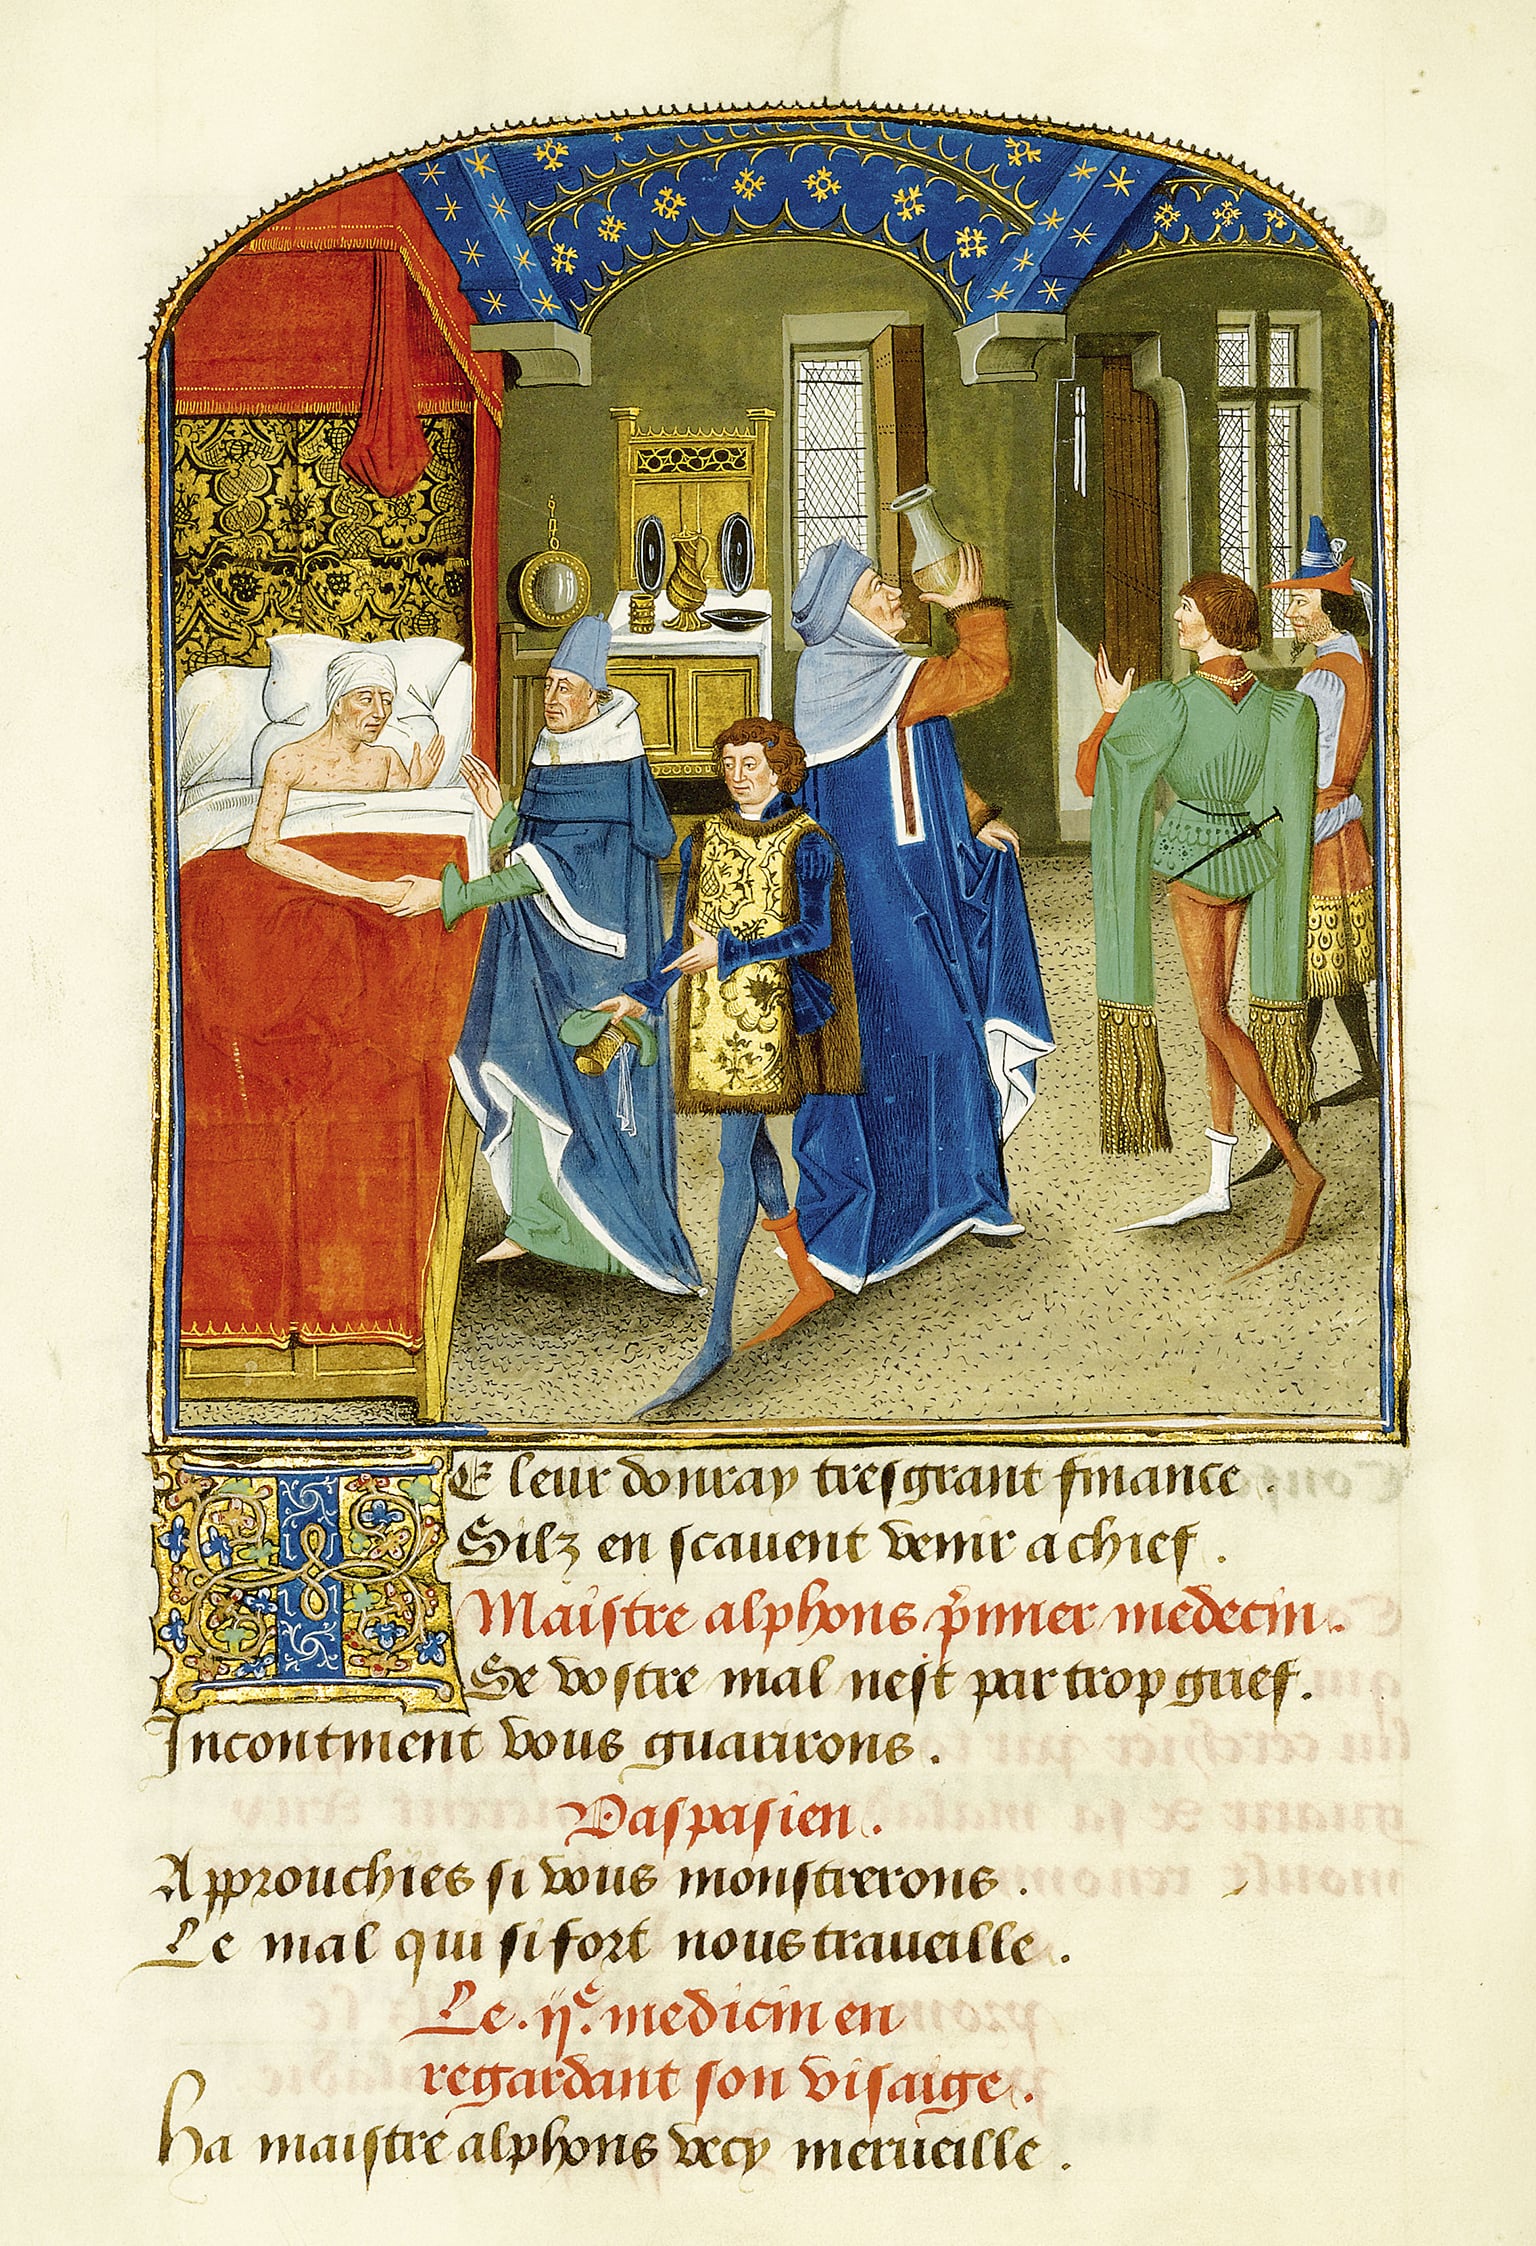 IE leur donray tresgrant finance .
Silz en scauent venir a chief .
Maistre alphons p̄mier medecin .
Se vostre mal nest par trop grief .
Incontinent vous guarirons .
Vaspasien .
Approuchies si vous monstrerons .
Le mal qui si fort nous traueille .
Le .ije. medicin en
regardant son visaige .
Ha maistre alphons vecy merueille .